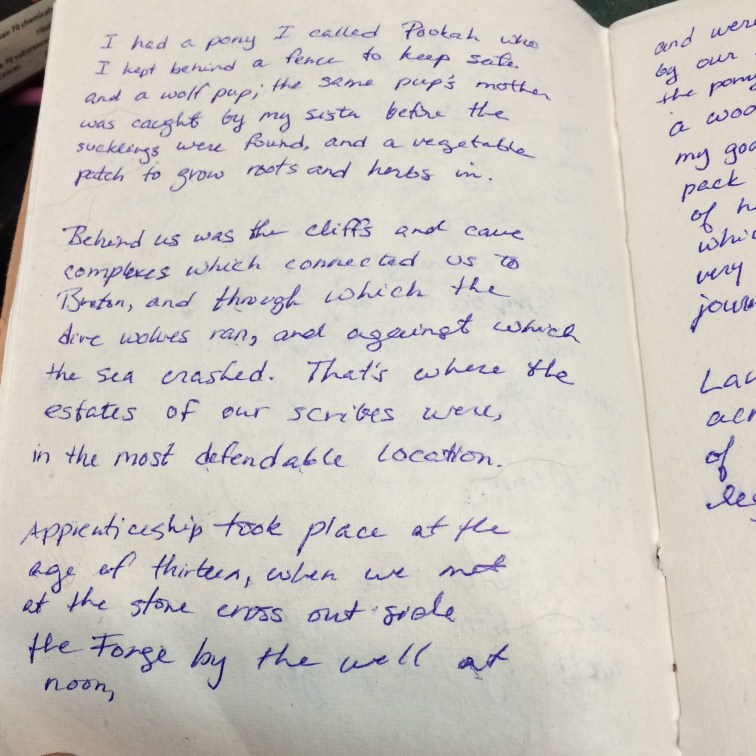 I had a pony I called Pookah who
I kept behind a fence to keep safe.
and a wolf pup; the same pup's mother
was caught by my sister before the
sucklings were found, and a vegetable
patch to grow roots and herbs in.
Behind us was the cliffs and cave
complexes which connected us to
Breton, and through which the
dire wolves ran, and against which
the sea crashed. That's where the
estates of our scribes were,
in the most defendable location.
Apprenticeship took place at the
age of thirteen, when we met
at the stone cross out side
the Forge by the well at
noon,
and were
by our
the pony
a woo
my goa
pack
of h
whic
very
jour
Lau
acr
of
les